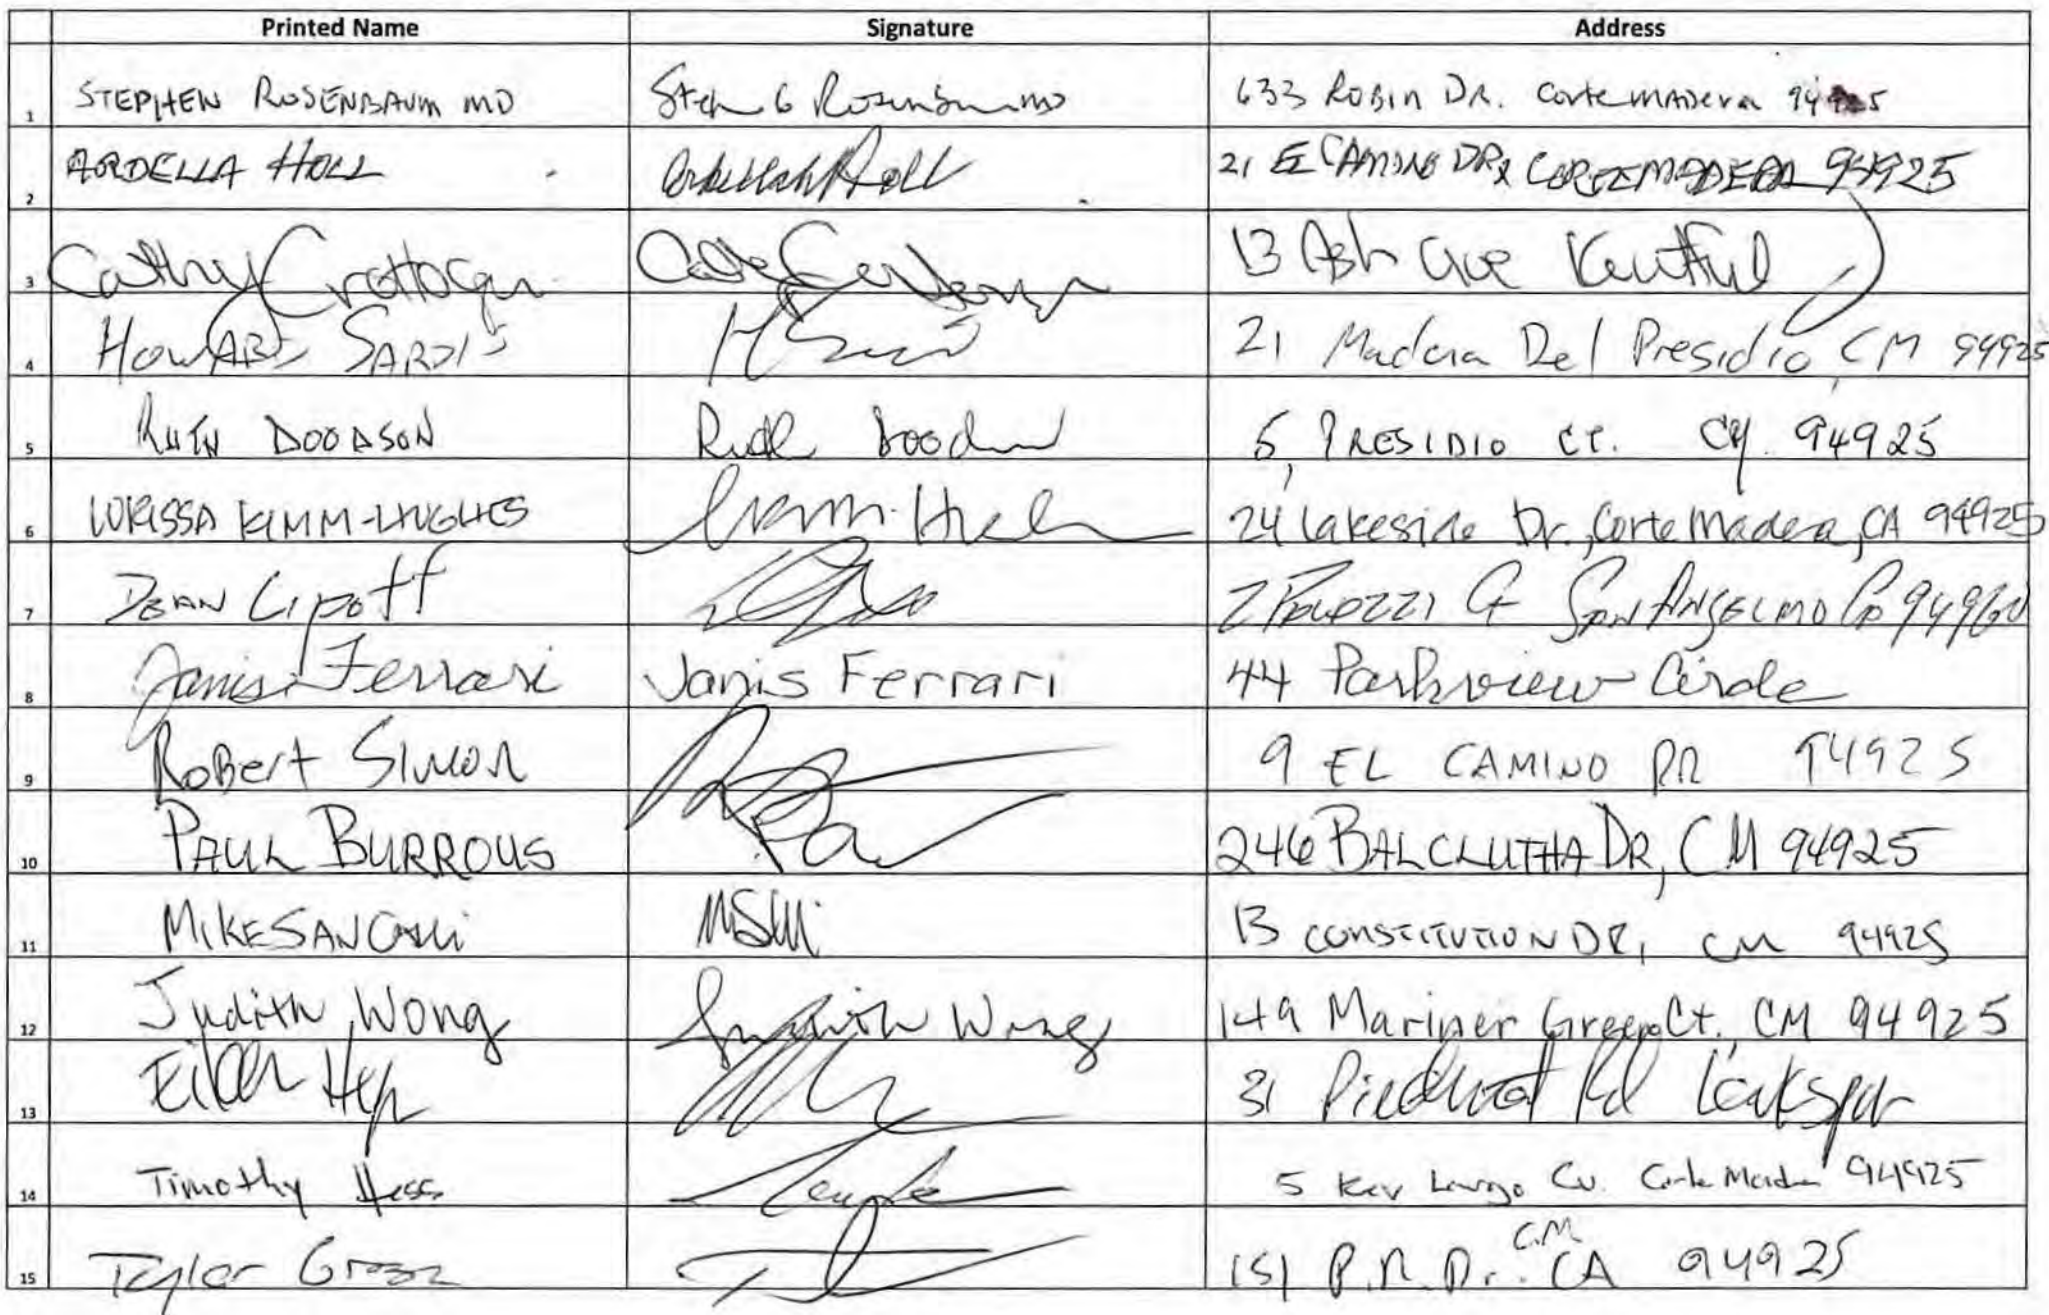 Printed Name Signature Address
1 STEPHEN ROSENBAUM MD 633 ROBIN DR. Corte MADera
2 ARDELLA HOLL 21 EL CAMINO DR, CORTE MADERA 94925
3 Cathy 13 Ash Ave Kentfield
4 HOWARD SARDIS 21 Madera Del Presidio CM 94925
5 RUTH DOODSON Ruth 5 PRESIDIO CT. CM. 94925
6 LORISSA KIMM-HUGHES 24 Lakeside Dr., Corte Madera, CA 94925
7 DEAN Lipoff 2 Ct SAN ANSELMO CA 94960
8 Janis Ferrari Janis Ferrari 44 Parkview Circle
9 RoBert SIMON 9 EL CAMINO DR 94925
10 PAUL BURROUS 246 BALCLUTHA DR, CM 94925
11 MIKE 13 CONSTITUTION DR, CM 94925
12 Judith Wong Judith Wong 149 Mariner Green Ct. CM 94925
13 31 Piedmont Rd Larkspur
14 Timothy Hess 5 Key Largo Cv. Corte Madera 94925
C.M.
15 Tyler 151 P.R. Dr. CA 94925